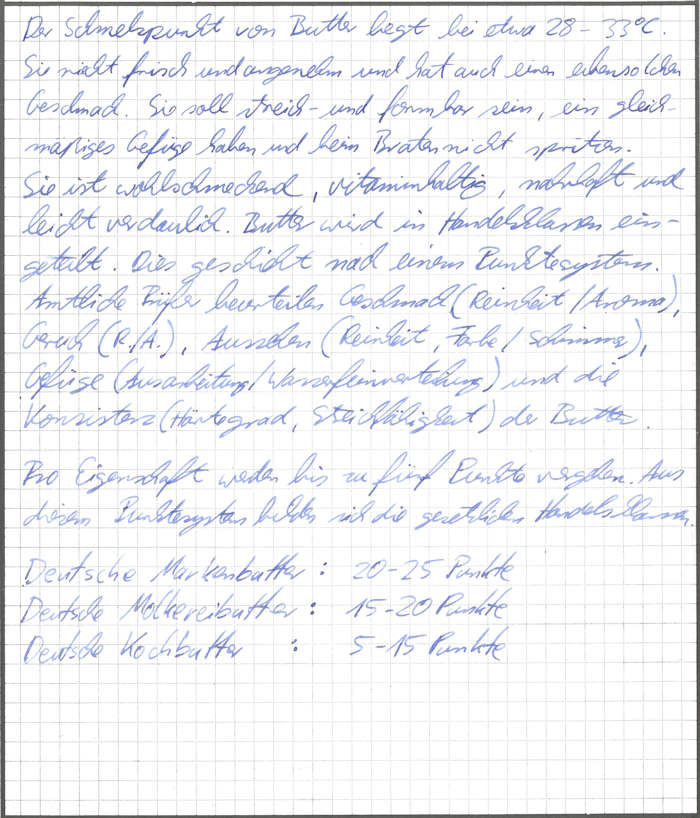 Der Schmelzpunkt von Butter liegt bei etwa 28 - 33°C.
Sie riecht frisch und angenehm und hat auch einen ebensolchen
Geschmack. Sie soll streich- und formbar sein, ein gleich-
mäßiges Gefüge haben und beim Braten nicht spritzen.
Sie ist wohlschmeckend, vitaminhaltig, nahrhaft und
leicht verdaulich. Butter wird in Handelsklassen ein-
geteilt. Dies geschieht nach einem Punktesystem.
Amtliche Prüfer beurteilen Geschmack (Reinheit / Aroma),
Geruch (R./A.), Aussehen (Reinheit, Farbe / Schimmer),
Gefüge (Ausarbeitung / Wasserfeinverteilung) und die
Konsistenz (Härtegrad, Streichfähigkeit) der Butter.
Pro Eigenschaft werden bis zu fünf Punkte vergeben. Aus
diesem Punktesystem bilden sich die gesetzlichen Handelsklassen.
Deutsche Markenbutter : 20-25 Punkte
Deutsche Molkereibutter : 15-20 Punkte
Deutsche Kochbutter : 5-15 Punkte